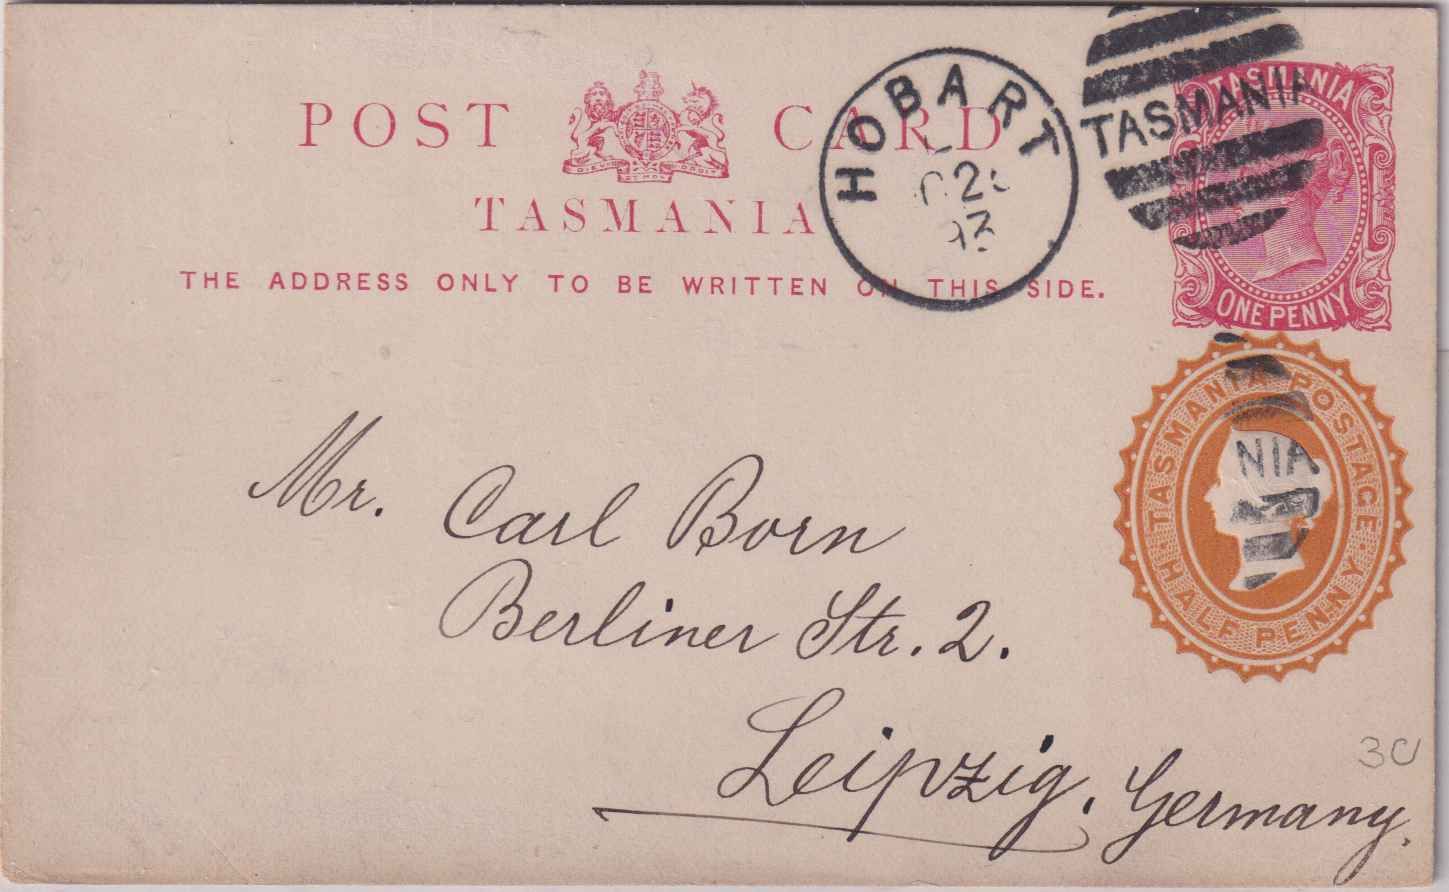 POST CARD
DIEU ET MON DROIT
TASMANIA
THE ADDRESS ONLY TO BE WRITTEN ON THIS SIDE.
HOBART
93
TASMANIA
TASMANIA
ONE PENNY
TASMANIA POSTAGE
HALF PENNY
NIA
Mr. Carl Born
Berliner Str. 2.
Leipzig, Germany.